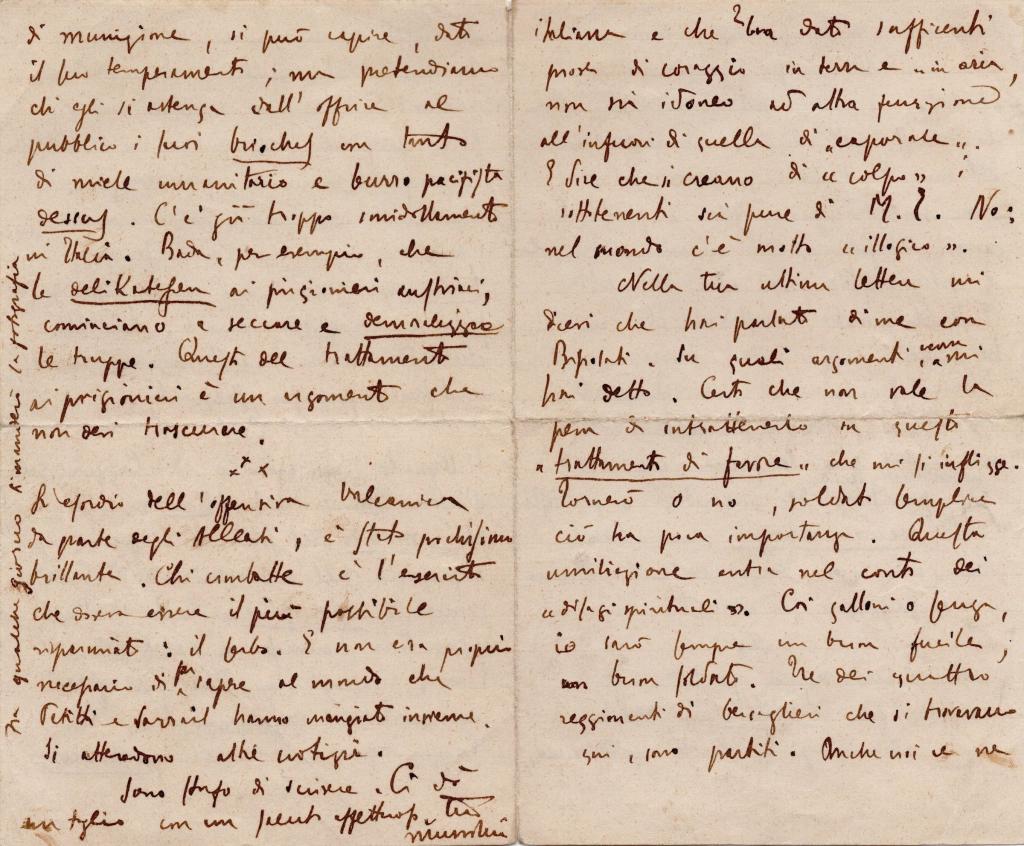 di munizione, si può capire, dato
il suo temperamento; ma pretendiamo
ch'egli si astenga dall'offrire al
pubblico i suoi brioches con tanto
di miele umanitario e burro pacifista
dessus. C'è già troppo smidollamento
in Italia. Bada, per esempio, che
le delikatessen ai prigionieri austriaci,
cominciano a seccare e
le truppe. Questo del trattamento
ai prigionieri è un argomento che
non devi trascurare.
x x x
L'esordio dell'offensiva balcanica
da parte degli Alleati, è stato pochissimo
brillante. Chi combatte è l'esercito
che doveva essere il più possibile
risparmiato: il serbo. E non era proprio
necessario di far sapere al mondo che
Petitti e Sarrail hanno mangiato insieme.
Si attendono altre notizie.
Sono stufo di scrivere. Ti dò
un taglio con un saluto affettuoso. Tuo
Mussolini
Fra qualche giorno ti manderò la fotografia
italiana e che ha dato sufficenti
prove di coraggio in terra e in aria,
non sia idoneo ad altra funzione
all'infuori di quella di „caporale„.
E dire che si creano di « colpo » i
sottotenenti sia pure di M. T. No:
nel mondo c'è molto « illogico ».
Nella tua ultima lettera mi
dicevi che hai parlato di me con
Bissolati. Su quali argomenti non mi
hai detto. Certo che non vale la
pena di intrattenerlo su questo
„trattamento di favore„ che mi si infligge.
Tornerò o no, soldato semplice
ciò ha poca importanza. Questa
umiliazione entra nel conto dei
« disagi spirituali ». Coi galloni o senza,
io sarò sempre un buon fucile,
un buon soldato. Tre dei quattro
reggimenti di bersaglieri che si trovavano
qui, sono partiti. Anche noi ce ne